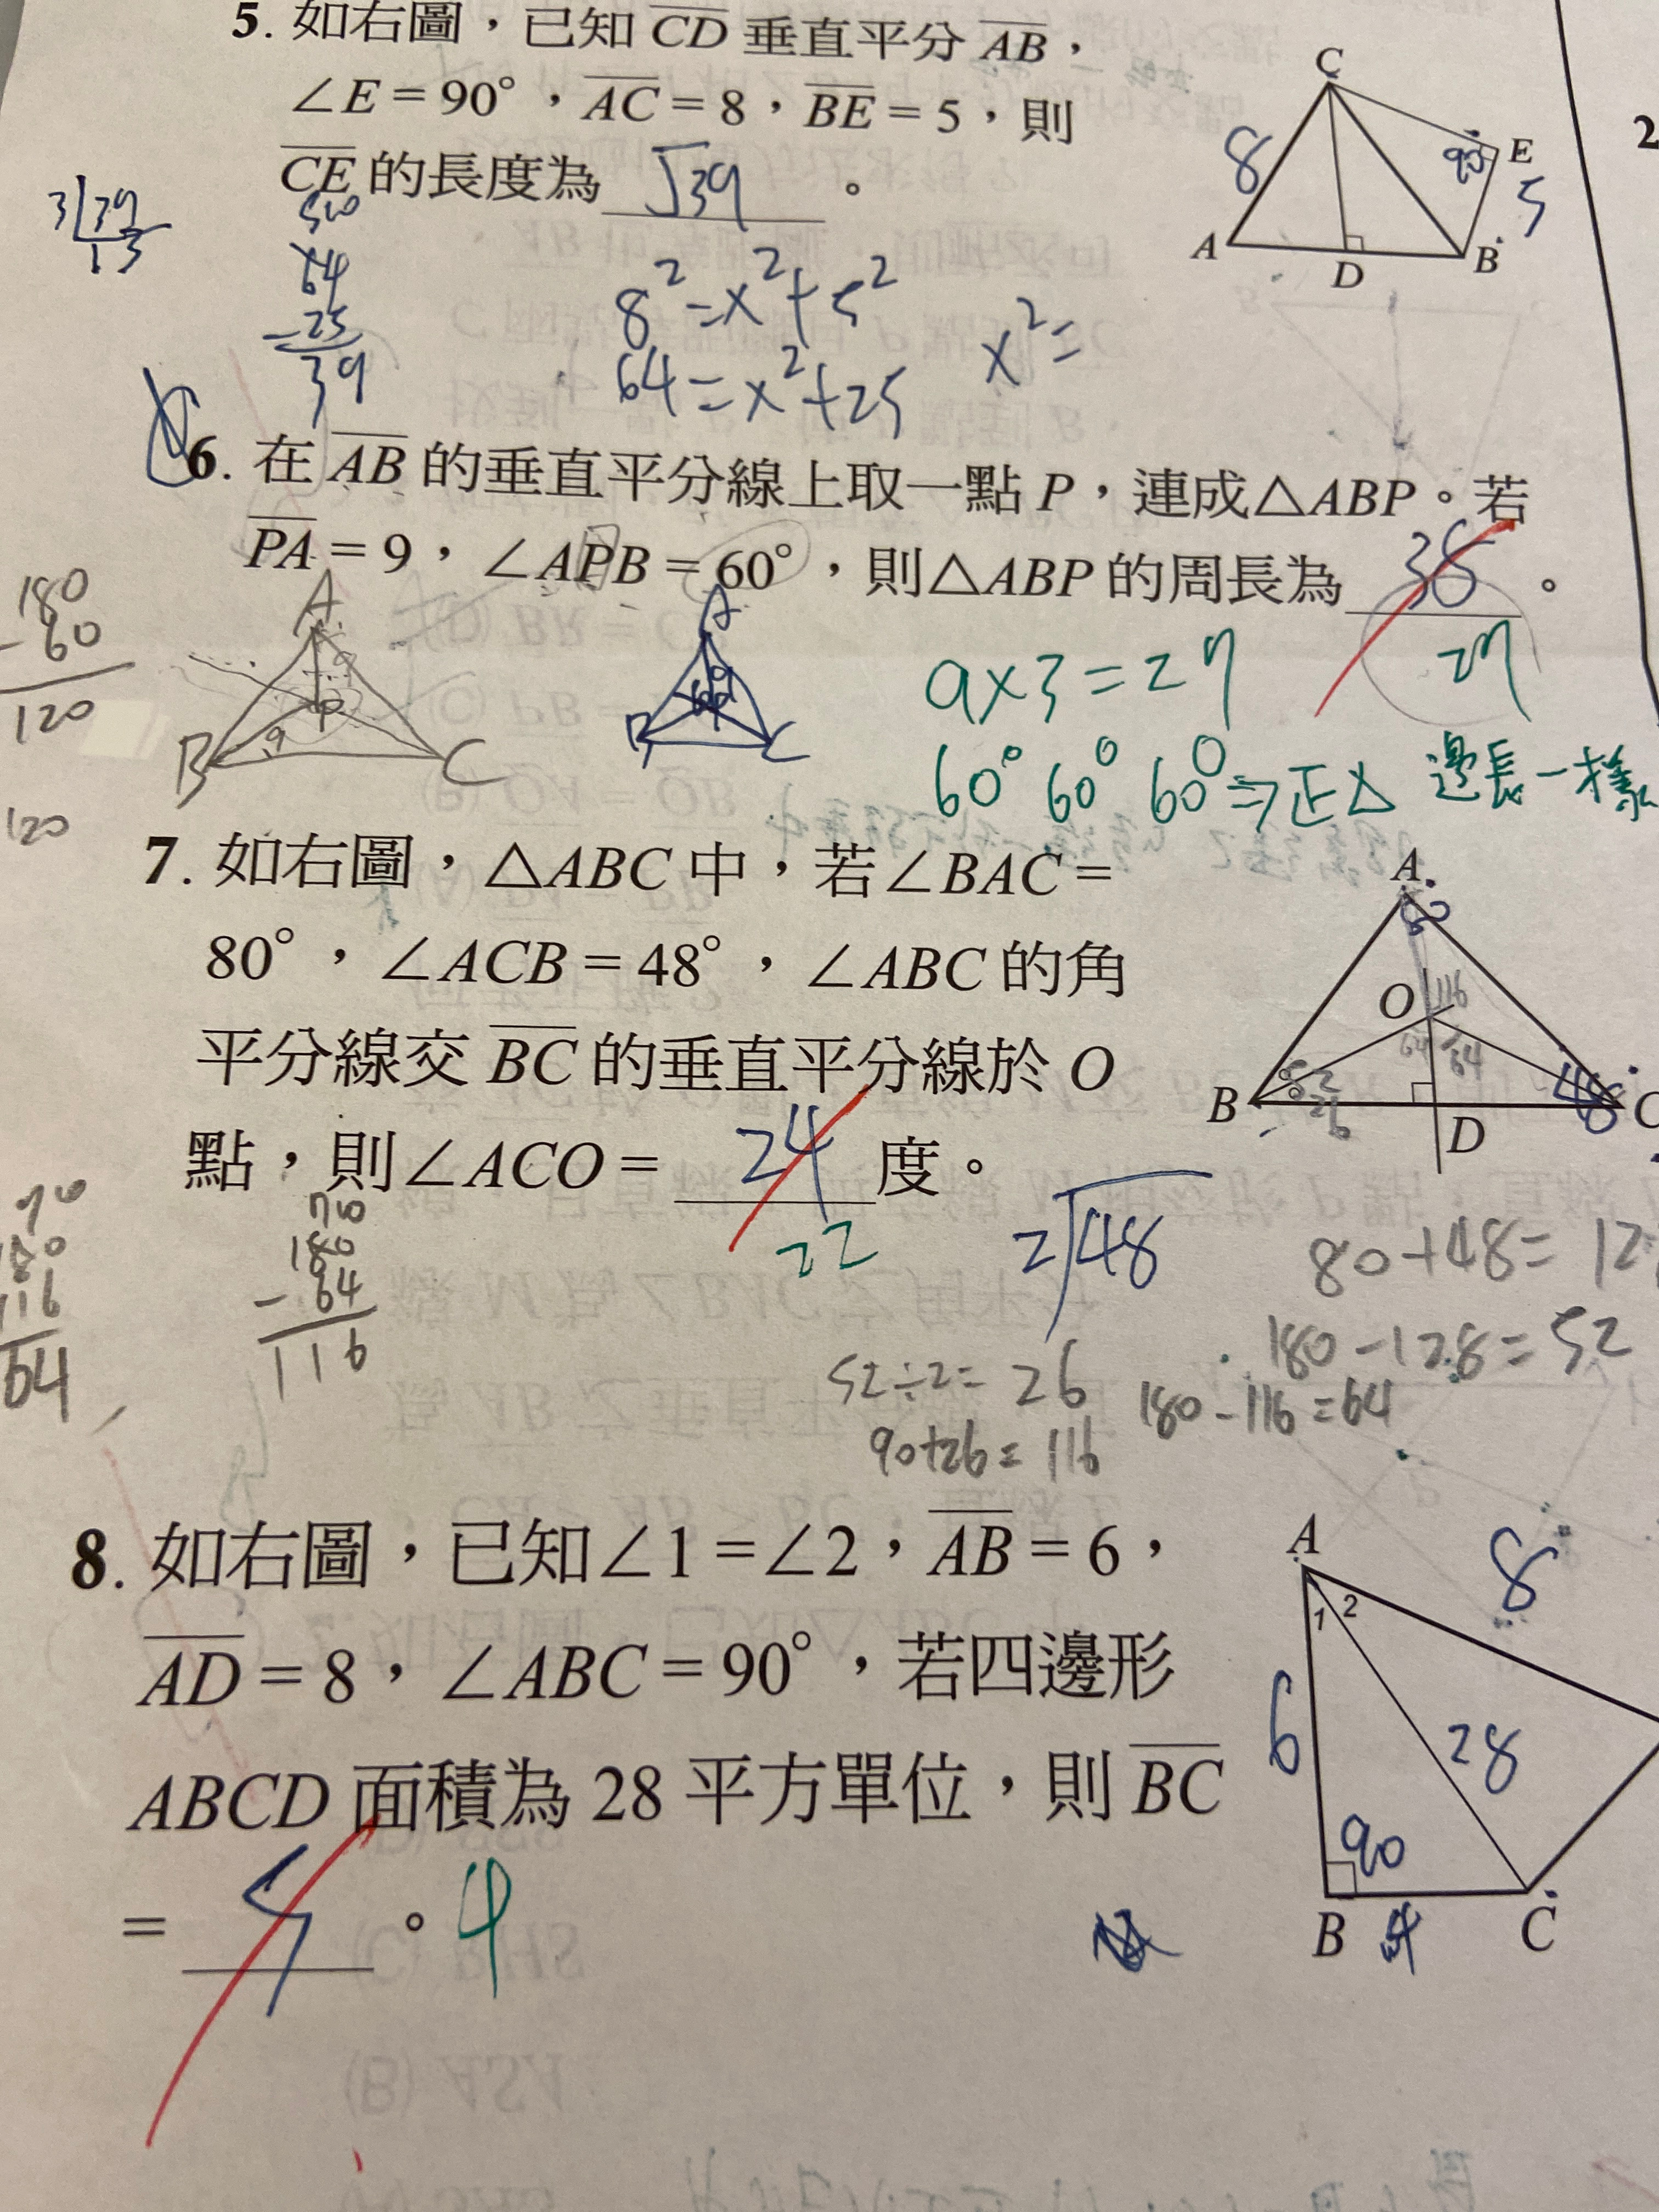 5. 如右圖，已知 CD 垂直平分 AB，
∠E = 90°，AC = 8，BE = 5，則
CE 的長度為 √39 。
C
8
90
E
5
A
D
B
3 39
13
64
-25
39
8² = x² + 5²
64 = x² + 25
x² =
6. 在 AB 的垂直平分線上取一點 P，連成△ABP。若
PA = 9，∠APB = 60°，則△ABP 的周長為 36 。
27
180
- 60
120
120
A
9
P
9
B
C
A
9
60
B
C
9×3 = 27
60° 60° 60° ⇒ 正△ 邊長一樣
7. 如右圖，△ABC 中，若∠BAC =
80°，∠ACB = 48°，∠ABC 的角
平分線交 BC 的垂直平分線於 O
點，則∠ACO = 24 度。
22
A
80
O
116
64
64
B
52
26
48
C
D
2 48
80+48 = 12
180 - 128 = 52
52÷2 = 26
180 - 116 = 64
90+26 = 116
180
- 64
116
116
64
8. 如右圖，已知∠1 =∠2，AB = 6，
AD = 8，∠ABC = 90°，若四邊形
ABCD 面積為 28 平方單位，則 BC
= 5 。 4
A
8
1 2
6
28
90
B
4
C
2